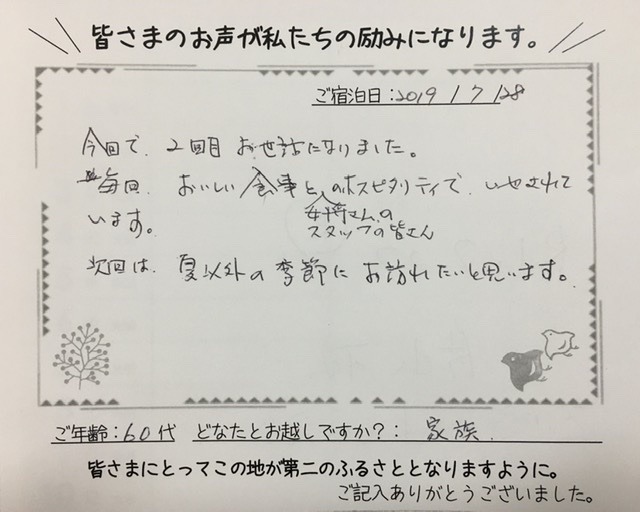 皆さまのお声が私たちの励みになります。
ご宿泊日:2019/7/28
今回で、2回目 お世話になりました。
毎回、おいしい食事と、のホスピタリティで、いやされて
女将さん、の
スタッフの皆さん
います。
次回は、夏以外の季節に お訪れたいと思います。
ご年齢:60代 どなたとお越しですか?: 家族
皆さまにとってこの地が第二のふるさととなりますように。
ご記入ありがとうございました。